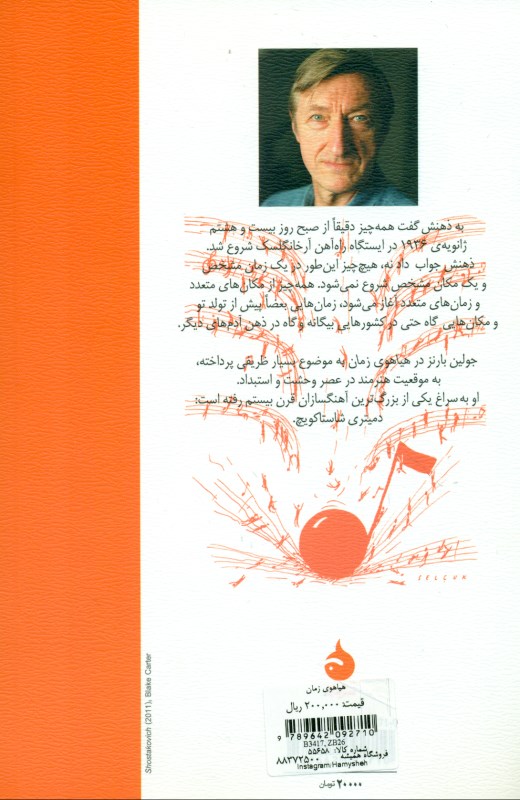 به ذهنش گفت همه‌چیز دقیقاً از صبح روز بیست و هشتم
ژانویه‌ی ۱۹۳۶ در ایستگاه راه‌آهن آرخانگلسک شروع شد.
ذهنش جواب داد نه، هیچ‌چیز این‌طور در یک زمان مشخص
و یک مکان مشخص شروع نمی‌شود. همه‌چیز از مکان‌های متعدد
و زمان‌های متعدد آغاز می‌شود، زمان‌هایی بعضاً پیش از تولد تو
و مکان‌هایی گاه حتی در کشورهایی بیگانه و گاه در ذهن آدم‌های دیگر.
جولین بارنز در هیاهوی زمان به موضوع بسیار ظریفی پرداخته،
به موقعیت هنرمند در عصر وحشت و استبداد.
او به سراغ یکی از بزرگ‌ترین آهنگسازان قرن بیستم رفته است:
دمیتری شاستاکویچ.
SELÇUK
Shostakovich (2011), Blake Carter
هیاهوی زمان
قیمت: ۲۰۰,۰۰۰ ریال
9 789642 092710
B3417, ZB26
شماره کالا: ۵۵۶۵۸
فروشگاه همیشه ۸۸۳۷۲۵۰۰
Instagram/Hamysheh
۲۰۰۰۰ تومان